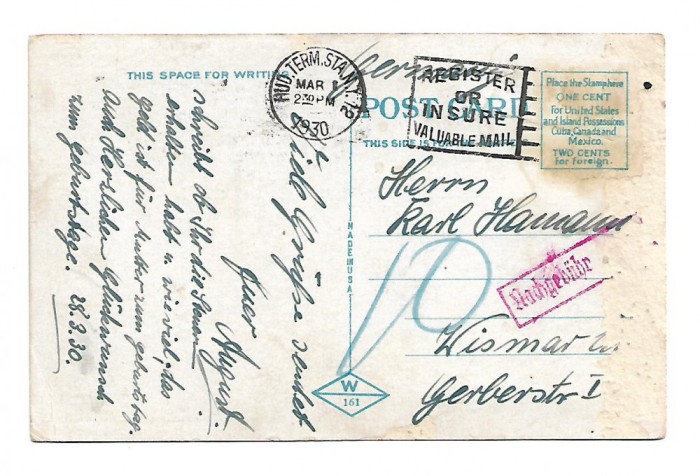 Germany
HUD. TERM. STA. N.Y. 12
MAR
2 30 PM
1930
REGISTER
OR
INSURE
VALUABLE MAIL
THIS SPACE FOR WRITING
POST CARD
THIS SIDE IS FOR
Place the Stamp here
ONE CENT
for United States
and Island Possessions
Cuba, Canada and
Mexico.
TWO CENTS
for Foreign.
Viele Grüße sendet
Euer August.
schreibt ob Ihr die
erhalten habt u. wie viel, das
geld ist für Mutter zum Geburtstag.
Auch Herzlichen Glückwunsch
zum Geburtstage. 28.2.30.
MADE IN USA
Herrn
Karl Hamann
Wismar
Gerberstr I
10
Nachgebühr
W
161